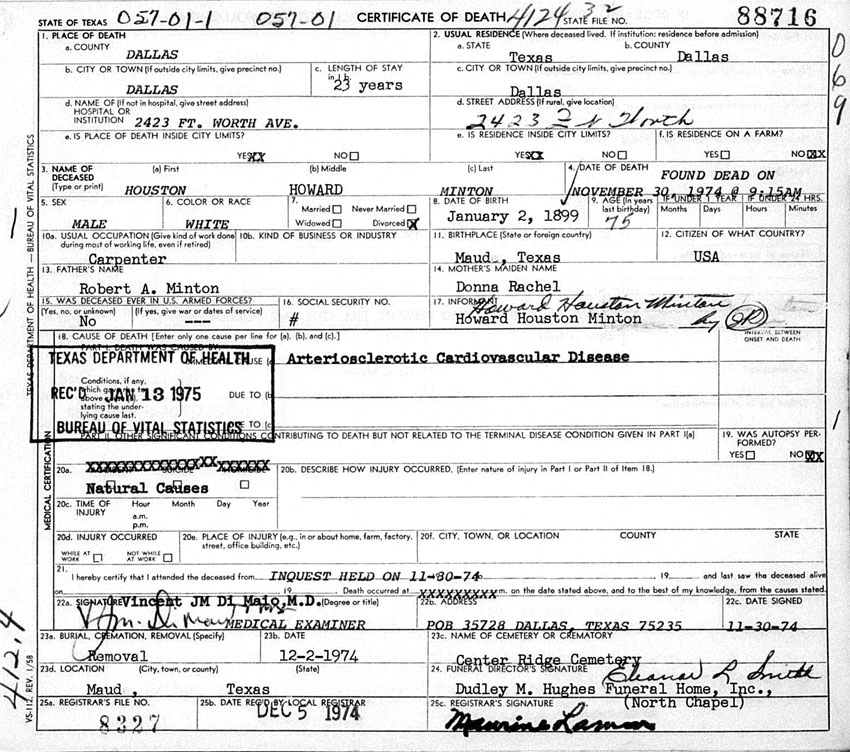 STATE OF TEXAS 057-01-1 057-01 CERTIFICATE OF DEATH 4124 32 STATE FILE NO. 88716
1. PLACE OF DEATH
a. COUNTY
DALLAS
2. USUAL RESIDENCE (Where deceased lived. If institution: residence before admission)
a. STATE b. COUNTY
Texas Dallas
b. CITY OR TOWN (If outside city limits, give precinct no.)
DALLAS
c. LENGTH OF STAY
in 1b.
23 years
c. CITY OR TOWN (If outside city limits, give precinct no.)
Dallas
d. NAME OF (If not in hospital, give street address)
HOSPITAL OR
INSTITUTION 2423 FT. WORTH AVE.
d. STREET ADDRESS (If rural, give location)
2423 Ft Worth
069
e. IS PLACE OF DEATH INSIDE CITY LIMITS?
YES XX NO
e. IS RESIDENCE INSIDE CITY LIMITS?
YES XX NO
f. IS RESIDENCE ON A FARM?
YES NO XX
3. NAME OF
DECEASED
(Type or print)
(a) First (b) Middle (c) Last
HOUSTON HOWARD MINTON
4. DATE OF DEATH FOUND DEAD ON
NOVEMBER 30, 1974 @ 9:15AM
5. SEX
MALE
6. COLOR OR RACE
WHITE
7.
Married Never Married
Widowed Divorced X
8. DATE OF BIRTH
January 2, 1899
9. AGE (In years
last birthday)
75
IF UNDER 1 YEAR IF UNDER 24 HRS.
Months Days Hours Minutes
10a. USUAL OCCUPATION (Give kind of work done
during most of working life, even if retired)
Carpenter
10b. KIND OF BUSINESS OR INDUSTRY
11. BIRTHPLACE (State or foreign country)
Maud, Texas
12. CITIZEN OF WHAT COUNTRY?
USA
13. FATHER'S NAME
Robert A. Minton
14. MOTHER'S MAIDEN NAME
Donna Rachel
15. WAS DECEASED EVER IN U.S. ARMED FORCES?
(Yes, no, or unknown) (If yes, give war or dates of service)
No ---
16. SOCIAL SECURITY NO.
#
17. INFORMANT
Howard Houston Minton
Howard Houston Minton by JR
18. CAUSE OF DEATH [Enter only one cause per line for (a), (b), and (c).]
INTERVAL BETWEEN
ONSET AND DEATH
PART I. DEATH WAS CAUSED BY:
TEXAS DEPARTMENT OF HEALTH
REC'D JAN 13 1975
BUREAU OF VITAL STATISTICS
CAUSE (a) Arteriosclerotic Cardiovascular Disease
Conditions, if any,
which gave rise to
above
stating the under-
lying cause last.
DUE TO (b)
DUE TO (c)
PART II. OTHER SIGNIFICANT CONDITIONS CONTRIBUTING TO DEATH BUT NOT RELATED TO THE TERMINAL DISEASE CONDITION GIVEN IN PART I(a)
19. WAS AUTOPSY PER-
FORMED?
YES NO XX
1
20a. XXXXXXXXXXXXXXX XXXXXXX
Natural Causes
20b. DESCRIBE HOW INJURY OCCURRED. (Enter nature of injury in Part I or Part II of Item 18.)
20c. TIME OF
INJURY
Hour Month Day Year
a.m.
p.m.
20d. INJURY OCCURRED
WHILE AT
WORK
NOT WHILE
AT WORK
20e. PLACE OF INJURY (e.g., in or about home, farm, factory,
street, office building, etc.)
20f. CITY, TOWN, OR LOCATION COUNTY STATE
21.
I hereby certify that I attended the deceased from INQUEST HELD ON 11-30-74 to 19 and last saw the deceased alive
on 19 Death occurred at XXXXXXXXX m. on the date stated above, and to the best of my knowledge, from the causes stated.
22a. SIGNATURE Vincent JM Di Maio, M.D. (Degree or title)
MEDICAL EXAMINER
22b. ADDRESS
POB 35728 DALLAS, TEXAS 75235
22c. DATE SIGNED
11-30-74
23a. BURIAL, CREMATION, REMOVAL (Specify)
Removal
23b. DATE
12-2-1974
23c. NAME OF CEMETERY OR CREMATORY
Center Ridge Cemetery
23d. LOCATION (City, town, or county) (State)
Maud, Texas
24. FUNERAL DIRECTOR'S SIGNATURE Eleanor L Smith
Dudley M. Hughes Funeral Home, Inc.,
(North Chapel)
25a. REGISTRAR'S FILE NO.
8327
25b. DATE REC'D BY LOCAL REGISTRAR
DEC 5 1974
25c. REGISTRAR'S SIGNATURE
TEXAS DEPARTMENT OF HEALTH — BUREAU OF VITAL STATISTICS
MEDICAL CERTIFICATION
VS-112, REV. 1/58
412.4